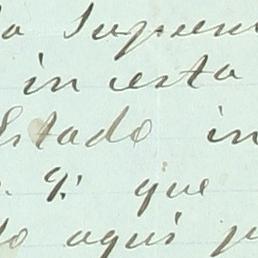 la Supre
in esta
Estado in
que
do aqui p